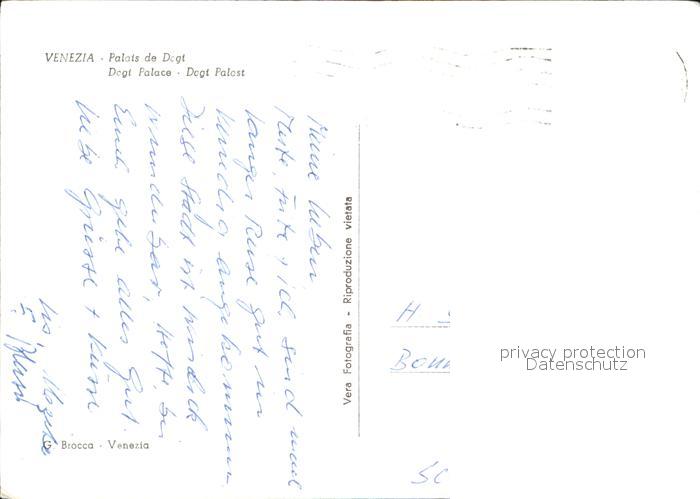 VENEZIA - Palais de Dogi
Dogi Palace - Dogi Palast
Meine Lieben
sind nach
langer Reise gut in
Venedig angekommen
diese Stadt ist wirklich
wunderbar, hoffe bei
Euch geht alles gut.
Liebe Grüsse + Küsse
G. Brocca - Venezia
Vera Fotografia - Riproduzione vietata
H
Bonn
privacy protection
Datenschutz